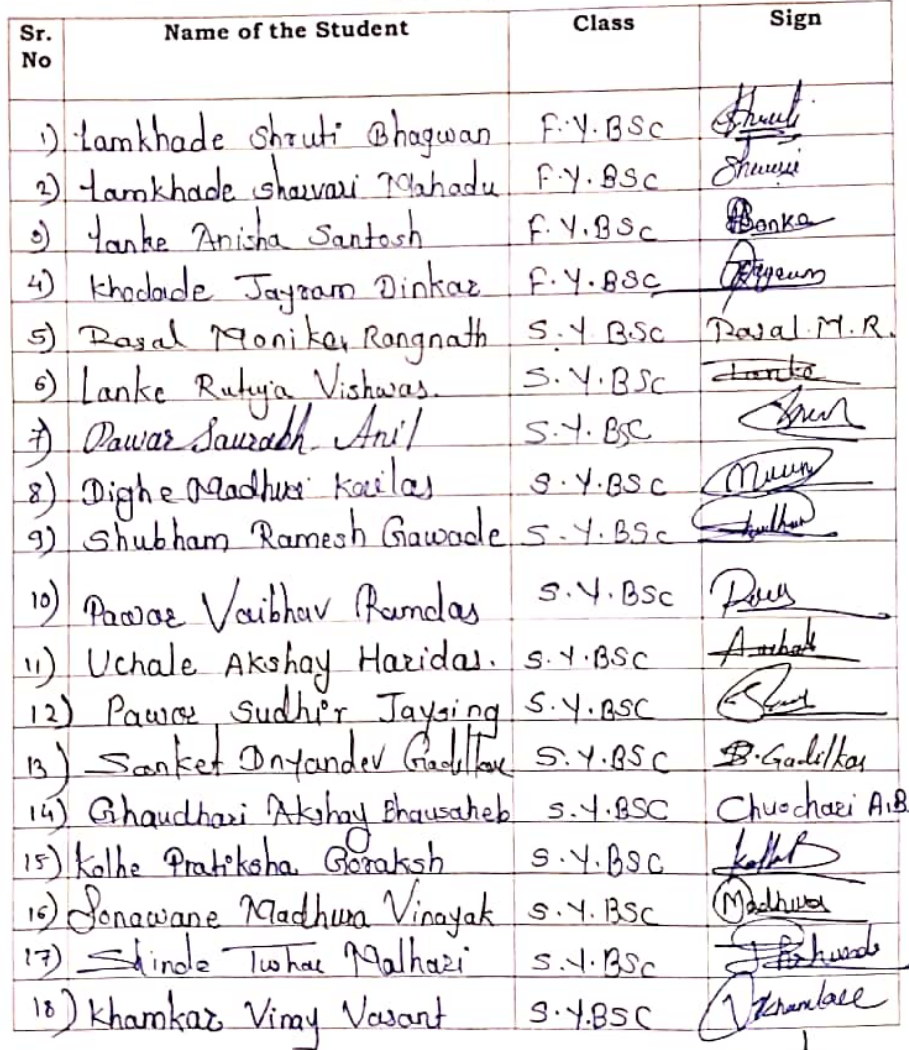 Sr. No Name of the Student Class Sign
1) Lamkhade Shruti Bhagwan F.Y.BSc Shruti
2) Lamkhade Sharvari Mahadu F.Y.BSc
3) Lanke Anisha Santosh F.Y.BSc
4) Khodade Jayram Dinkar F.Y.BSc
5) Rasal Monika Rangnath S.Y.BSc Rasal.M.R.
6) Lanke Rutuja Vishwas. S.Y.BSc Lanke
7) Pawar Saurabh Anil S.Y.BSC
8) Dighe Madhuri Kailas S.Y.BSc
9) Shubham Ramesh Gawade S.Y.BSc
10) Pawar Vaibhav Ramdas S.Y.BSc
11) Uchale Akshay Haridas. S.Y.BSC
12) Pawar Sudhir Jaysing S.Y.BSC
13) Sanket Dnyandev Gadilkar S.Y.BSC S.Gadilkar
14) Chaudhari Akshay Bhausaheb S.Y.BSC A.B.
15) Kolhe Pratiksha Goraksh S.Y.BSC
16) Sonawane Madhura Vinayak S.Y.BSc Madhura
17) Shinde Tushar Malhari S.Y.BSc
18) Khamkar Vinay Vasant S.Y.BSC